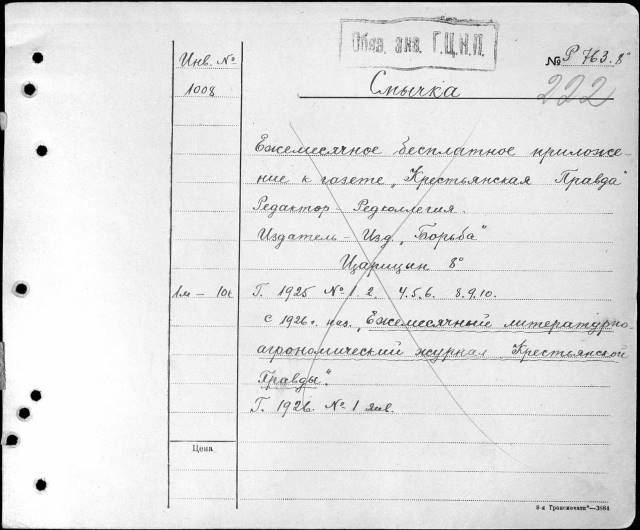 Обяз. экз. Г.Ц.К.П.
Инв. №
№ Р 763.8°
1008
Смычка
222
Ежемесячное бесплатное приложе-
ние к газете „Крестьянская Правда"
Редактор Редколлегия.
Издатель – Изд. „Борьба"
Царицын 8°
1м – 10с
Г. 1925 № 1. 2. 4. 5. 6. 8. 9. 10.
с 1926 г. наз. „Ежемесячный литературно-
агрономический журнал Крестьянской
Правды".
Г. 1926. № 1 янв.
Цена
8-я „Транспечати"—3884